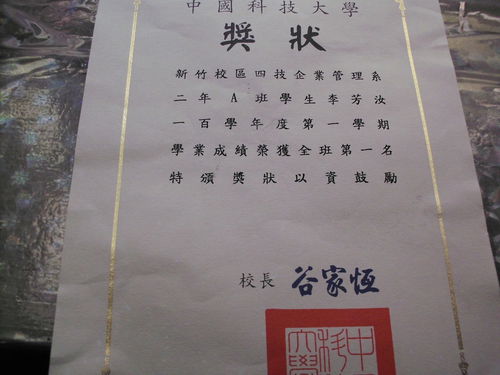 中國科技大學
獎狀
新竹校區四技企業管理系
二年A班學生李芳汝
一百學年度第一學期
學業成績榮獲全班第一名
特頒獎狀以資鼓勵
校長 谷家恆